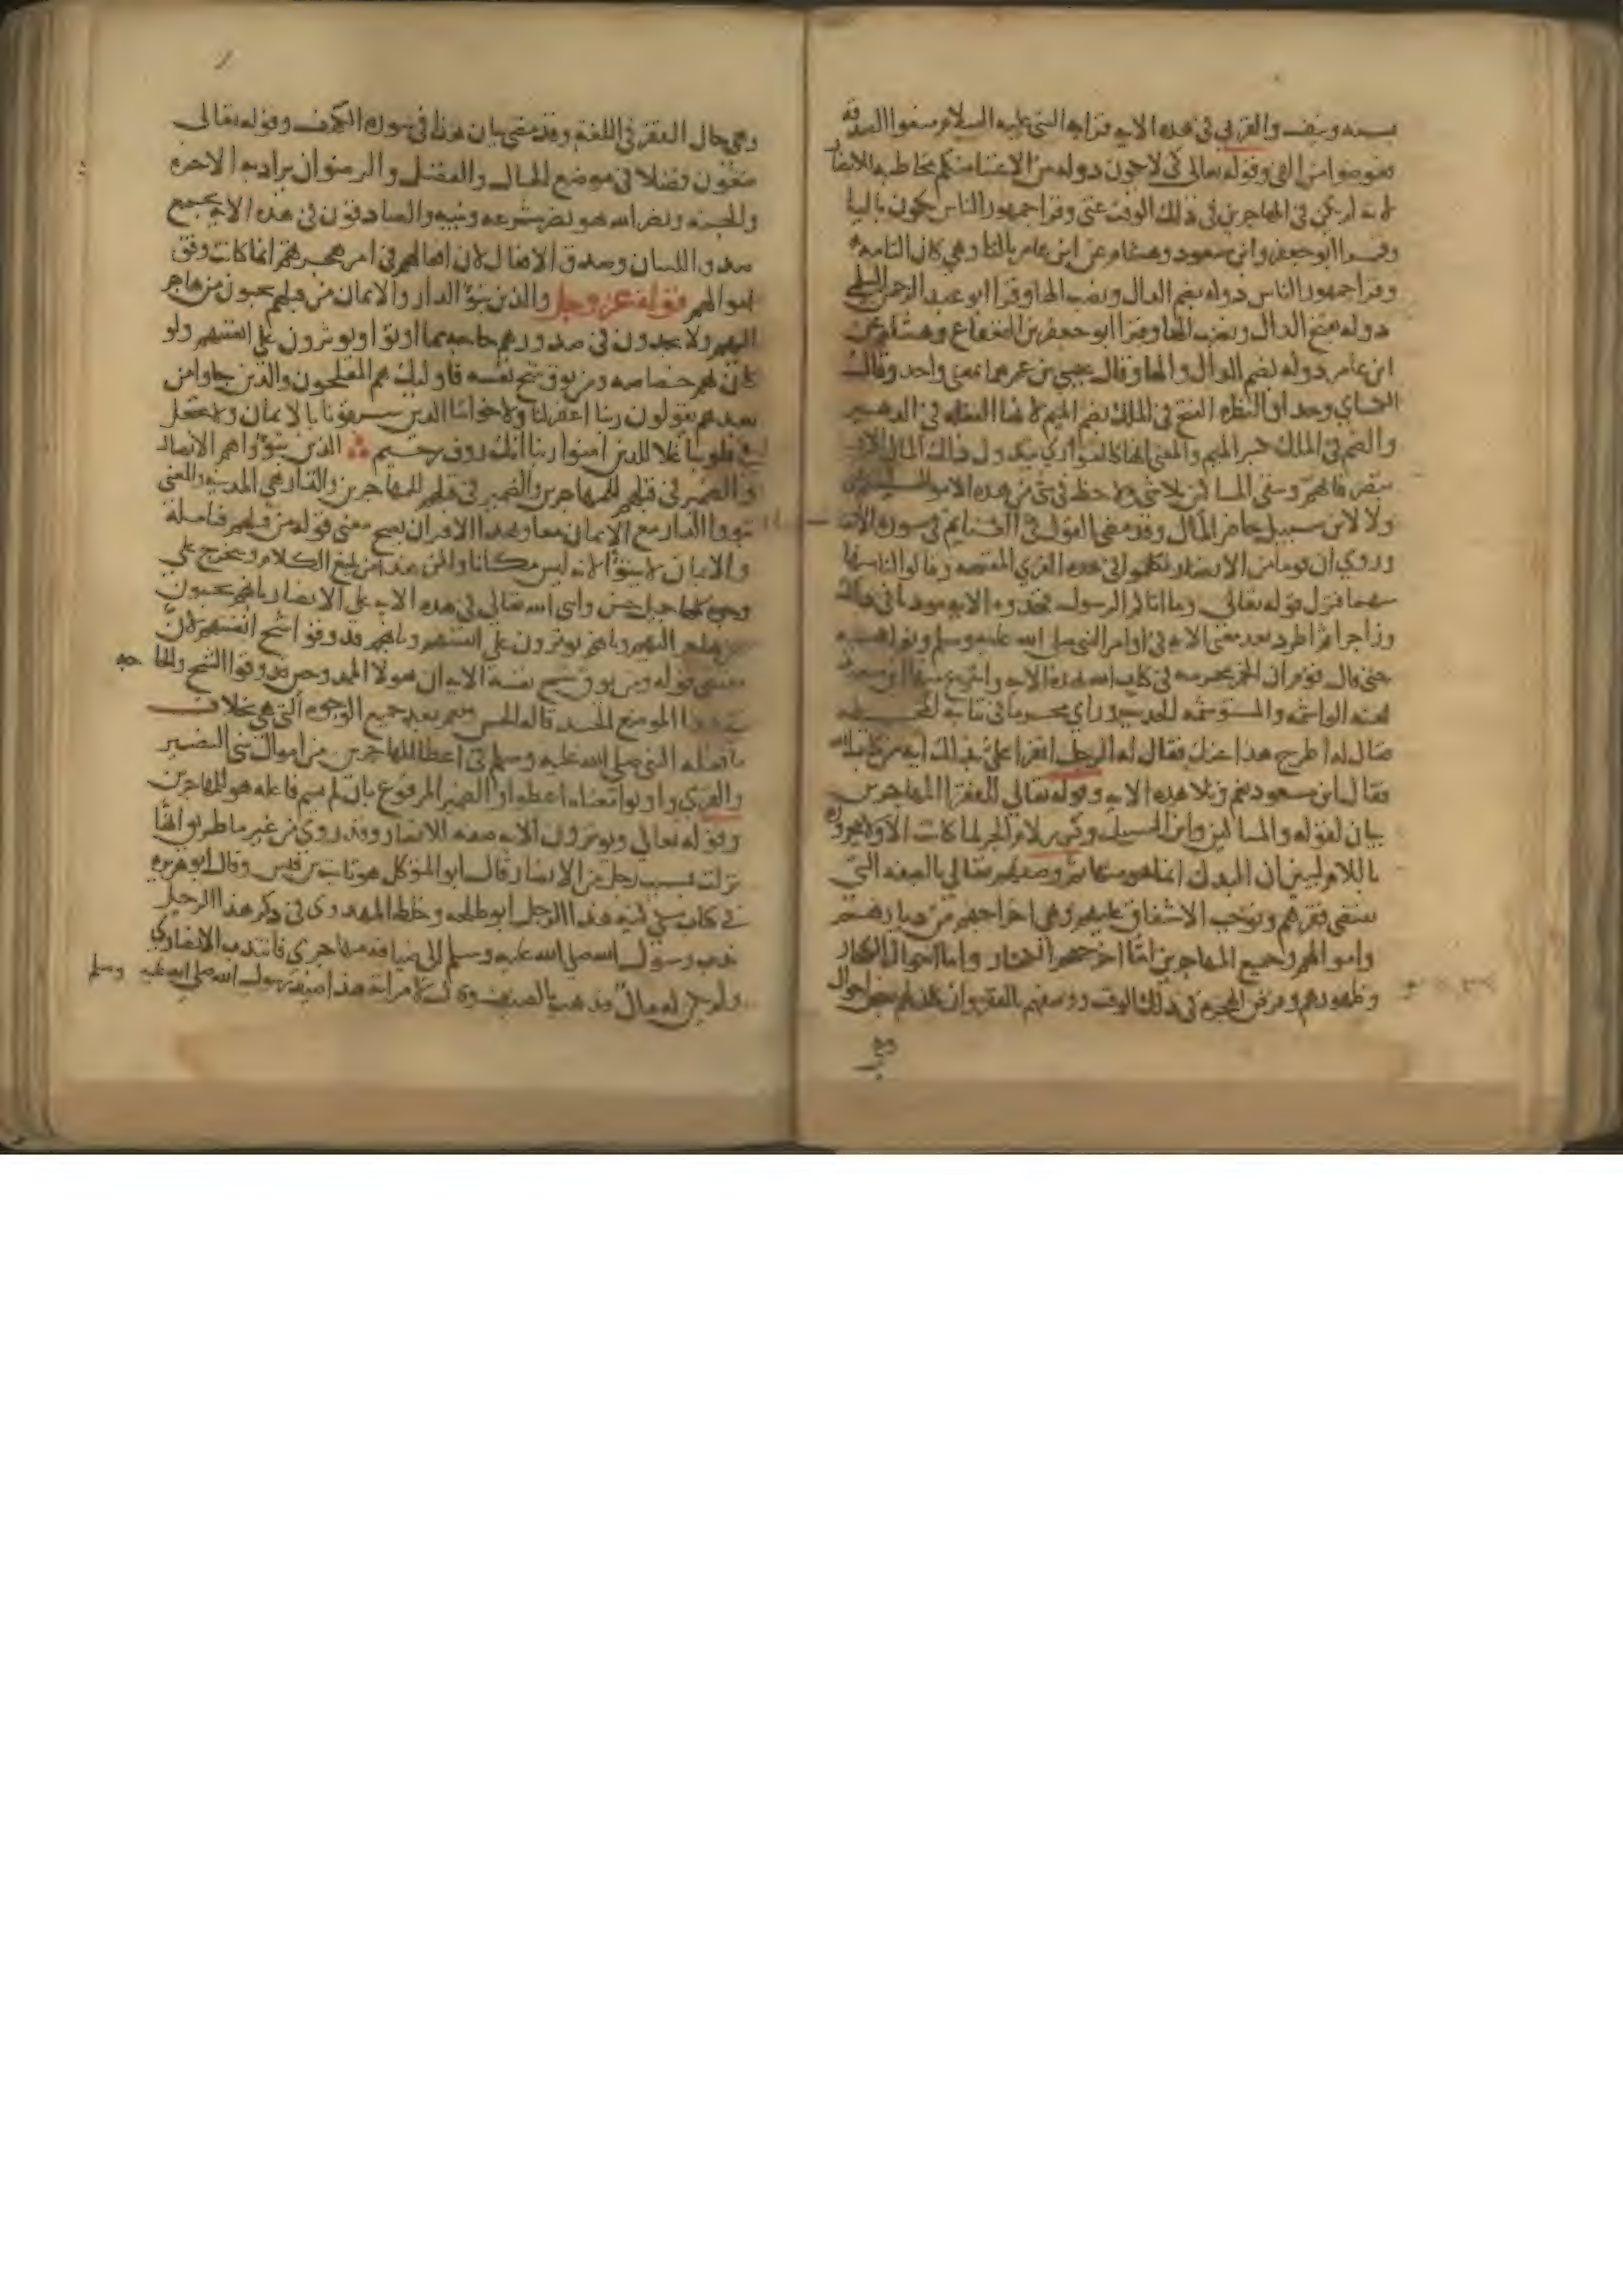 بسنه وسقف والقربى في هذه الايه قرابه النبي عليه السلام منعوا الصدقه
فعوضوا من الفي وقوله تعالى كي لا يكون دوله بين الاغنيا منكم مخاطبه للانصار
لانه لم يكن في المهاجرين في ذلك الوقت غني وقرا جمهور الناس يكون باليا
وقرا ابو جعفر وابن مسعود وهشام عن ابن عامر بالتا وهي كان التامه
وقرا جمهور الناس دوله بضم الدال ونصب الها وقرا ابو عبد الرحمن السلمي
دوله بفتح الدال ونصب الها وقرا ابو جعفر بن القعقاع وهشام عن
ابن عامر دوله بضم الدال والها وقال عيسى بن عمر هما بمعنى واحد وقال
الكساي وحذاق النظره الفتح في الملك بضم الميم لانها الفعله في الدهر
والضم في الملك بكسر الميم والمعنى انها كالعواري يتداول ذلك المال الاغنيا
بتصرفاتهم وبقى المساكين بلا شي ولا حظ في شي من هذه الاموال
ولا لابن سبيل حاضر المال وقد مضى القول في الغنايم في سوره الانفال
وروي ان قوما من الانصار تكلموا في هذه القرى المفتتحه وقالوا لنا منها
سهمنا فنزل قوله تعالى وما اتاكم الرسول فخذوه الايه مودبا في ذلك
وزاجرا ثم اطرد بعد معنى الايه في اوامر النبي صلى الله عليه وسلم ونواهيه
حتى قال قوم ان الخمر محرمه في كتاب الله بهذه الايه وانتزع منها ابن مسعود
لعنه الواشمه والمستوشمه الحديث وراى محرما في ثيابه المخيطه
فقال له اطرح هذا عنك فقال له الرجل اتقرا علي بذلك ايه من كتاب الله
فقال ابن مسعود نعم وتلا هذه الايه وقوله تعالى للفقرا المهاجرين
بيان لقوله والمساكين وابن السبيل وكرر لام الجر لما كانت الاولى مجروره
باللام ليبين ان البدل انما هو منها ثم وصفهم تعالى بالصفه التي
تقتضي فقرهم وتوجب الاشفاق عليهم وهي اخراجهم من ديارهم
واموالهم وجميع المهاجرين اما اخرجهم الكفار واما احوال الكفار
وظهورهم وفرض الهجره في ذلك الوقت ووصفهم بالفقر وان كان لهم بعض احوال
وهي
وهي حال الفقر في اللغه وقد مضى بيان هذا في سوره الكهف وقوله تعالى
يبتغون فضلا في موضع الحال والفضل والرضوان يراد به الاخره
والجنه ونصر الله هو نصر شرعه ونبيه والصادقون في هذه الايه يجمع
صدق اللسان وصدق الافعال لان افعالهم في امر هجرتهم انما كانت وفق
اقوالهم قوله عز وجل والذين تبوؤا الدار والايمان من قبلهم يحبون من هاجر
اليهم ولا يجدون في صدورهم حاجه مما اوتوا ويوثرون على انفسهم ولو
كان بهم خصاصه ومن يوق شح نفسه فاوليك هم المفلحون والذين جاوا من
بعدهم يقولون ربنا اغفر لنا ولاخواننا الذين سبقونا بالايمان ولا تجعل
في قلوبنا غلا للذين امنوا ربنا انك روف رحيم الذين تبوؤا هم الانصار
والضمير في قبلهم للمهاجرين والضمير في قبلهم للمهاجرين والدار هي المدينه والمعنى
تبووا الدار مع الايمان معا وبهذا الاقتران يصح معنى قوله من قبلهم فتامله
والايمان لا يتبوؤ لانه ليس مكانا ولكن هذا من بليغ الكلام ويتخرج على
وجوه كلها جميل حسن واثنى الله تعالى في هذه الايه على الانصار بانهم يحبون
من هاجر اليهم وبانهم يوثرون على انفسهم وبانهم قد وقوا شح انفسهم لان
مقتضى قوله ومن يوق شح نفسه الايه ان هولا الممدوحين قد وقوا الشح والحاجه
في هذا الموضع الحسد قاله الحسن ويعم بعد جميع الوجوه التي هي بخلاف
ما فعله النبي صلى الله عليه وسلم في اعطا المهاجرين من اموال بني النضير
والقرى واوتوا معناه اعطوا والضمير المرفوع بان لم يسم فاعله هو للمهاجرين
وقوله تعالى ويوثرون الايه صفه للانصار وقد روي من غير ما طريق انها
نزلت بسبب رجل من الانصار قال ابو المتوكل هو ثابت بن قيس وقال ابو هريره
في كتاب مكي كنيه هذا الرجل ابو طلحه وخلط المهدوي في ذكر هذا الرجل
ندب رسول الله صلى الله عليه وسلم الى ضيافه مهاجري فانتدب الانصاري
ولم يكن له مال فذهب بالضيف وقال لامراته هذا ضيف رسول الله صلى الله عليه وسلم